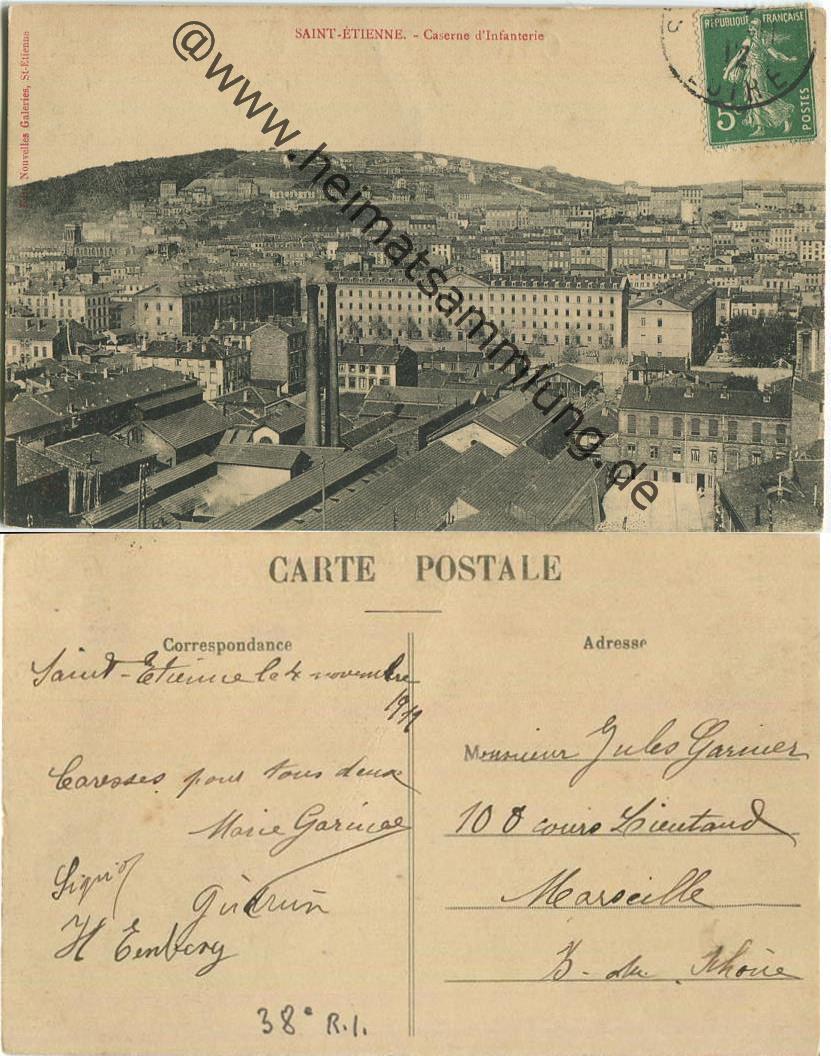 SAINT-ÉTIENNE. - Caserne d'Infanterie
Nouvelles Galeries, St-Etienne
REPUBLIQUE FRANÇAISE
5c
POSTES
12
LOIRE
@www.heimatsammlung.de
CARTE POSTALE
Correspondance
Adresse
Saint-Etienne le 4 novembre
19
Caresses pour tous deux
Marie
Monsieur Jules Garnier
108 cours Lieutaud
Marseille
B- du Rhône
38e R.I.